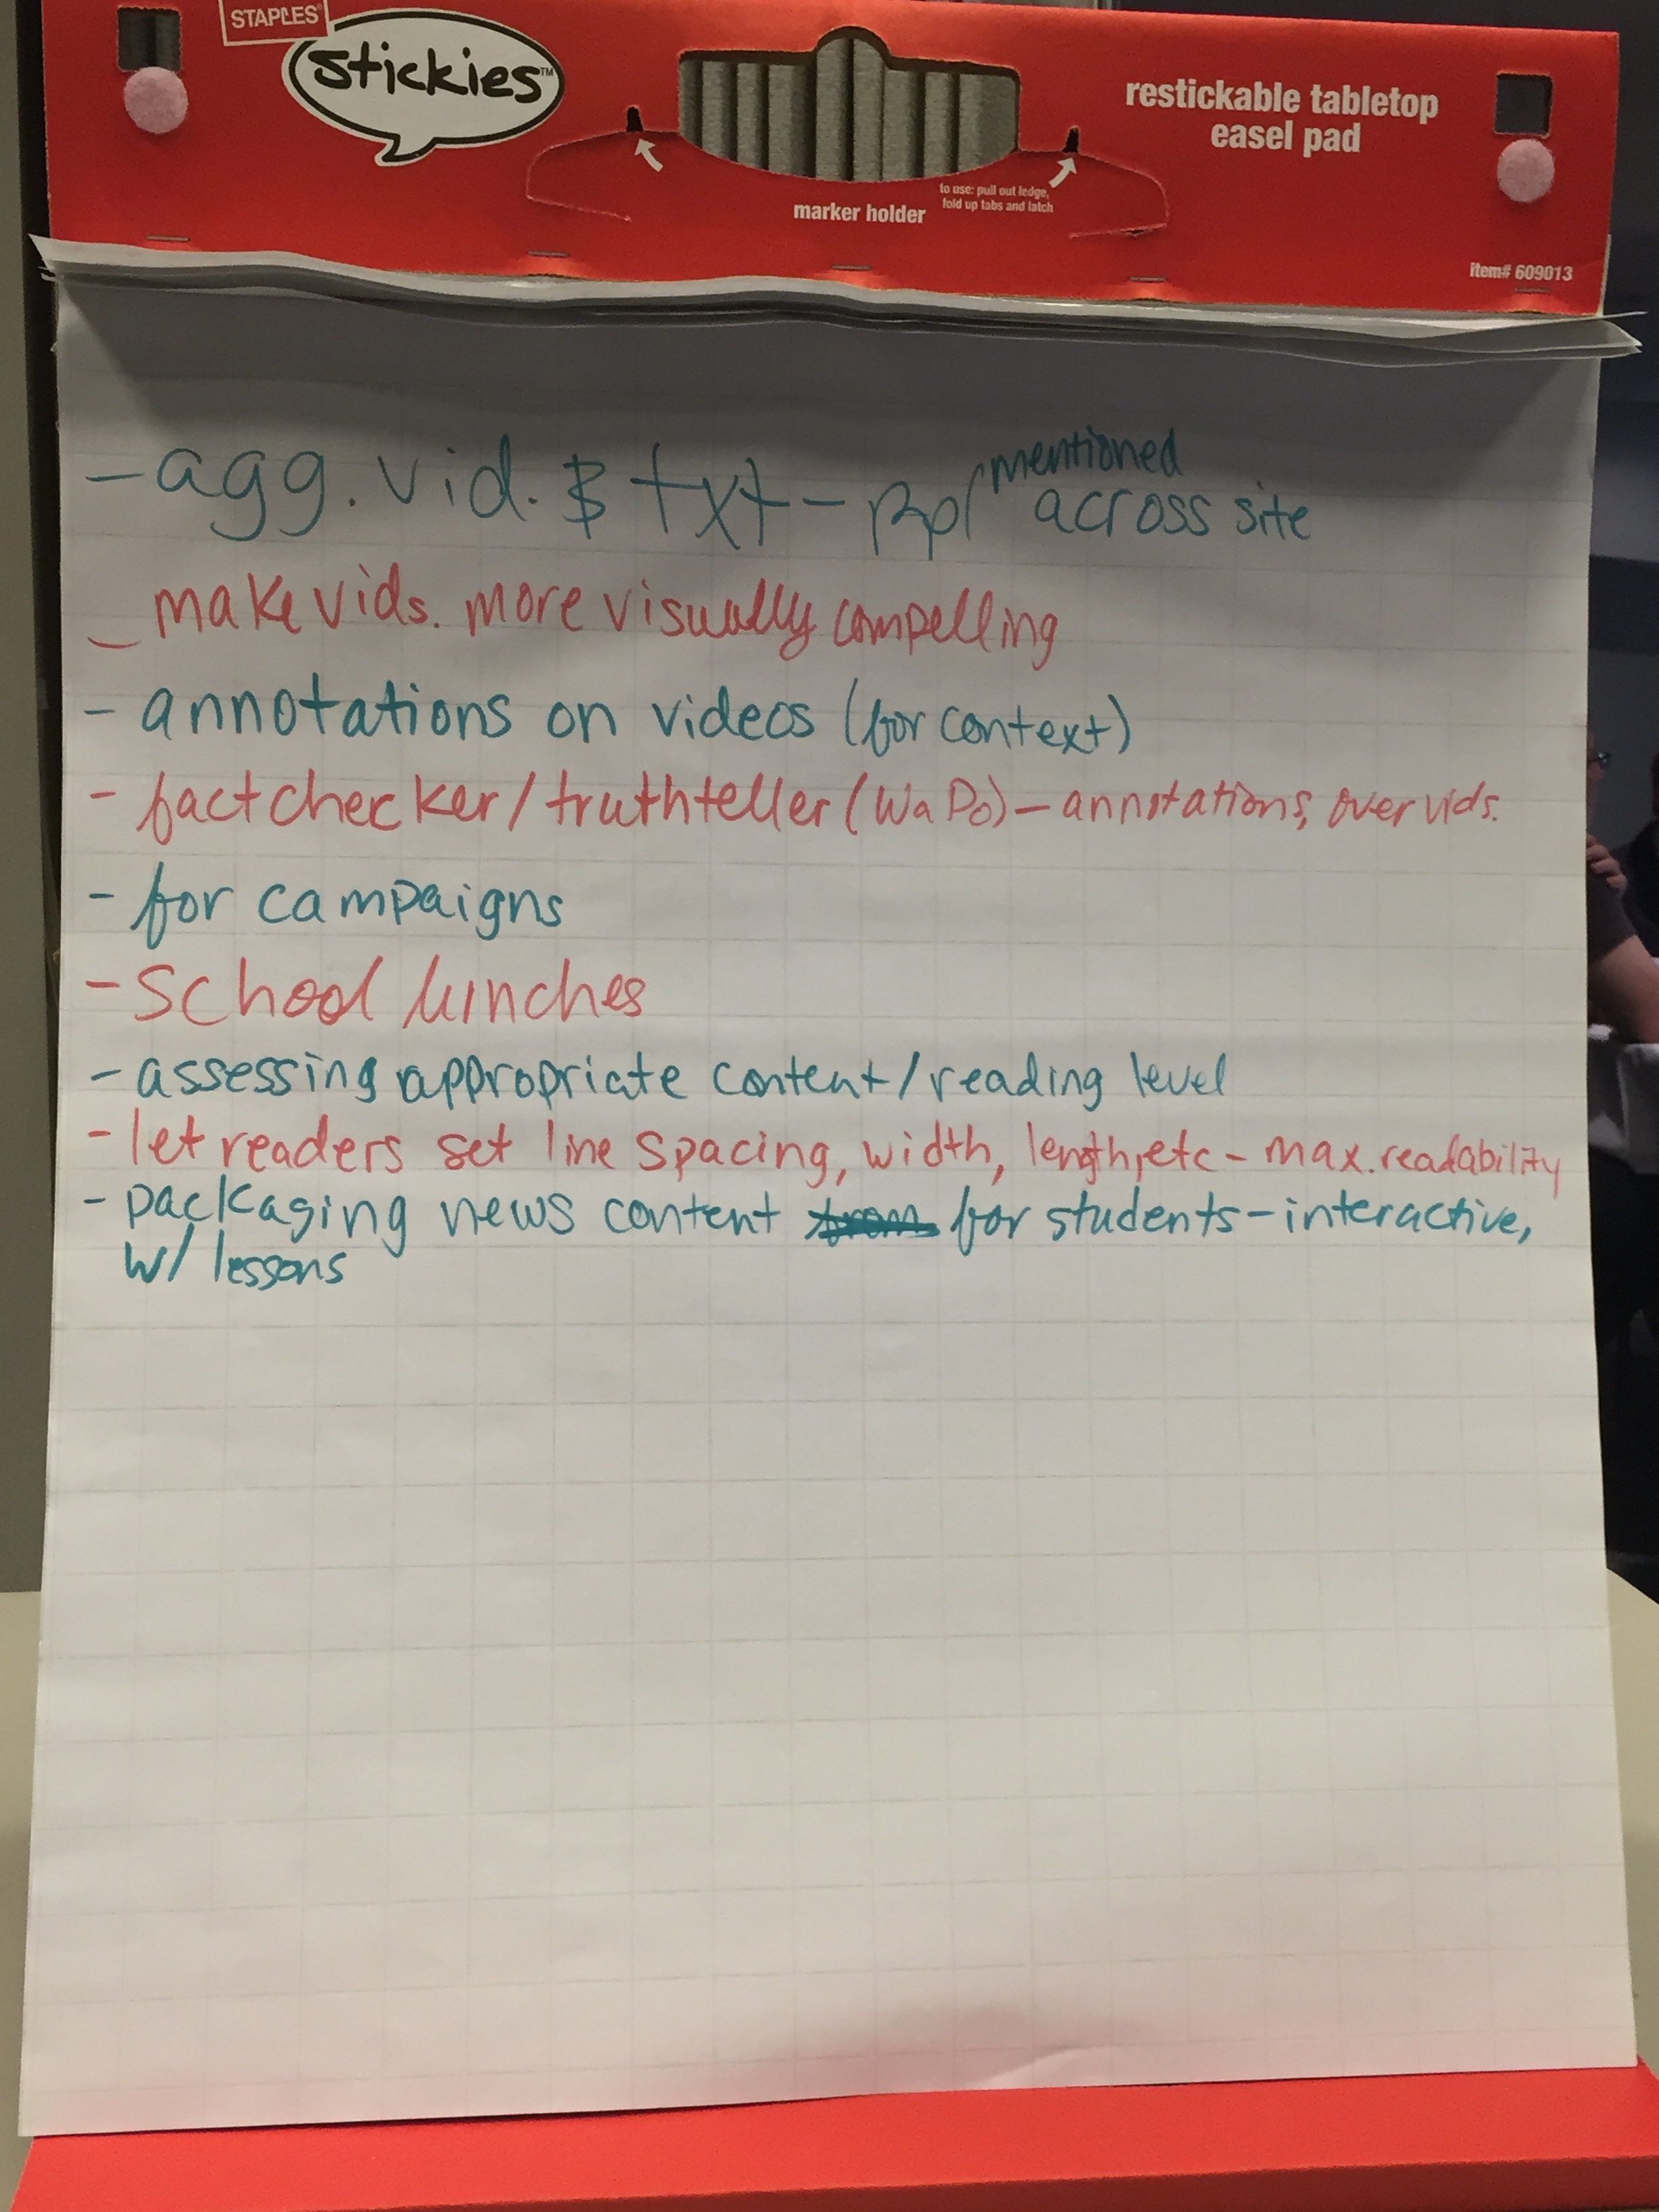 STAPLES
stickies™
restickable tabletop
easel pad
to use: pull out ledge,
fold up tabs and latch
marker holder
item# 609013
- agg. vid. & txt - ppl mentioned
across site
- make vids. more visually compelling
- annotations on videos (for context)
- factchecker/truthteller (WaPo) - annotations over vids.
- for campaigns
- School lunches
- assessing appropriate content/reading level
- let readers set line spacing, width, length, etc - max. readability
- packaging news content for students - interactive,
w/ lessons